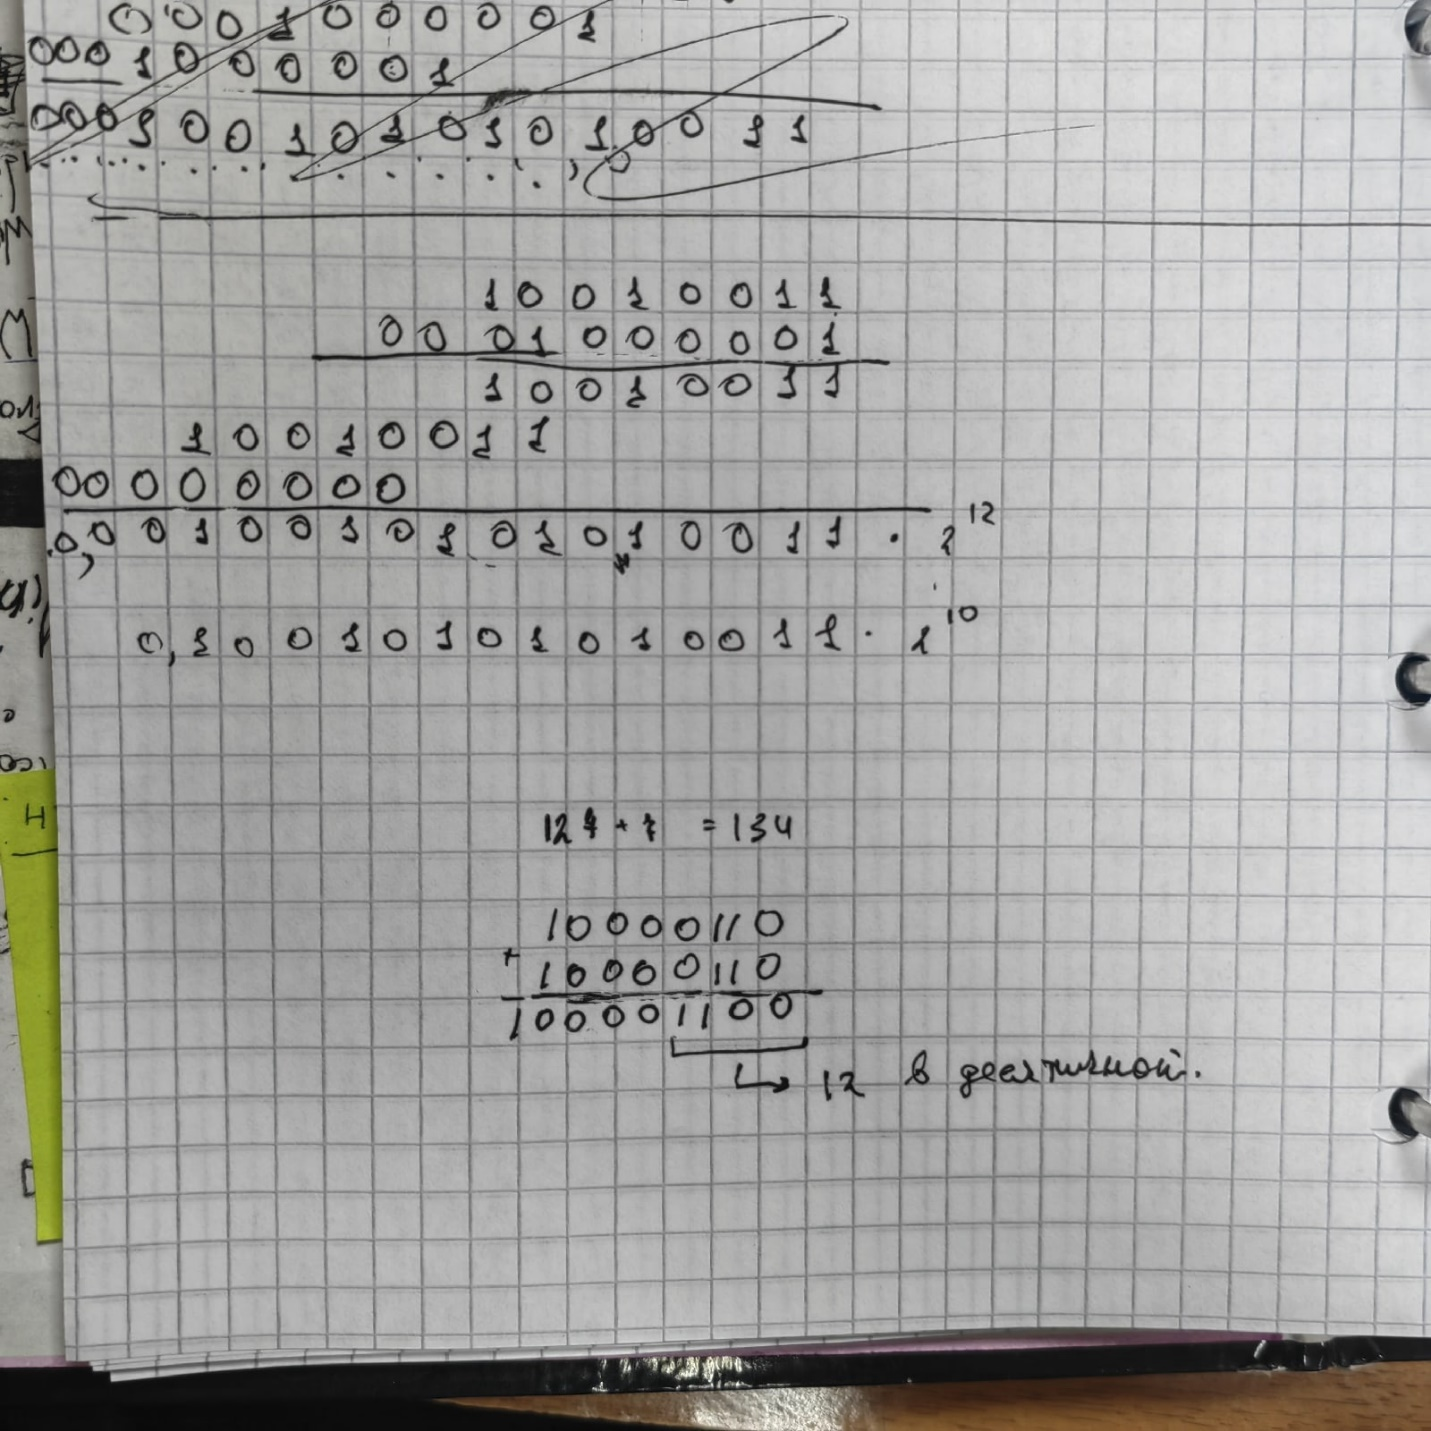 0 0 0 1 0 0 0 0 0 1
0 0 0 1 0 0 0 0 0 1
0 0 0 1 0 0 1 0 1 0 1 0 1 0 0 1 1
1 0 0 1 0 0 1 1
0 0 0 1 0 0 0 0 0 1
1 0 0 1 0 0 1 1
1 0 0 1 0 0 1 1
0 0 0 0 0 0 0 0
0,0 0 1 0 0 1 0 1 0 1 0 1 0 0 1 1 · 2^12
0,1 0 0 1 0 1 0 1 0 1 0 0 1 1 · 2^10
127 + 7 = 134
10000110
+ 10000110
100001100
↳ 12 в десятичной.